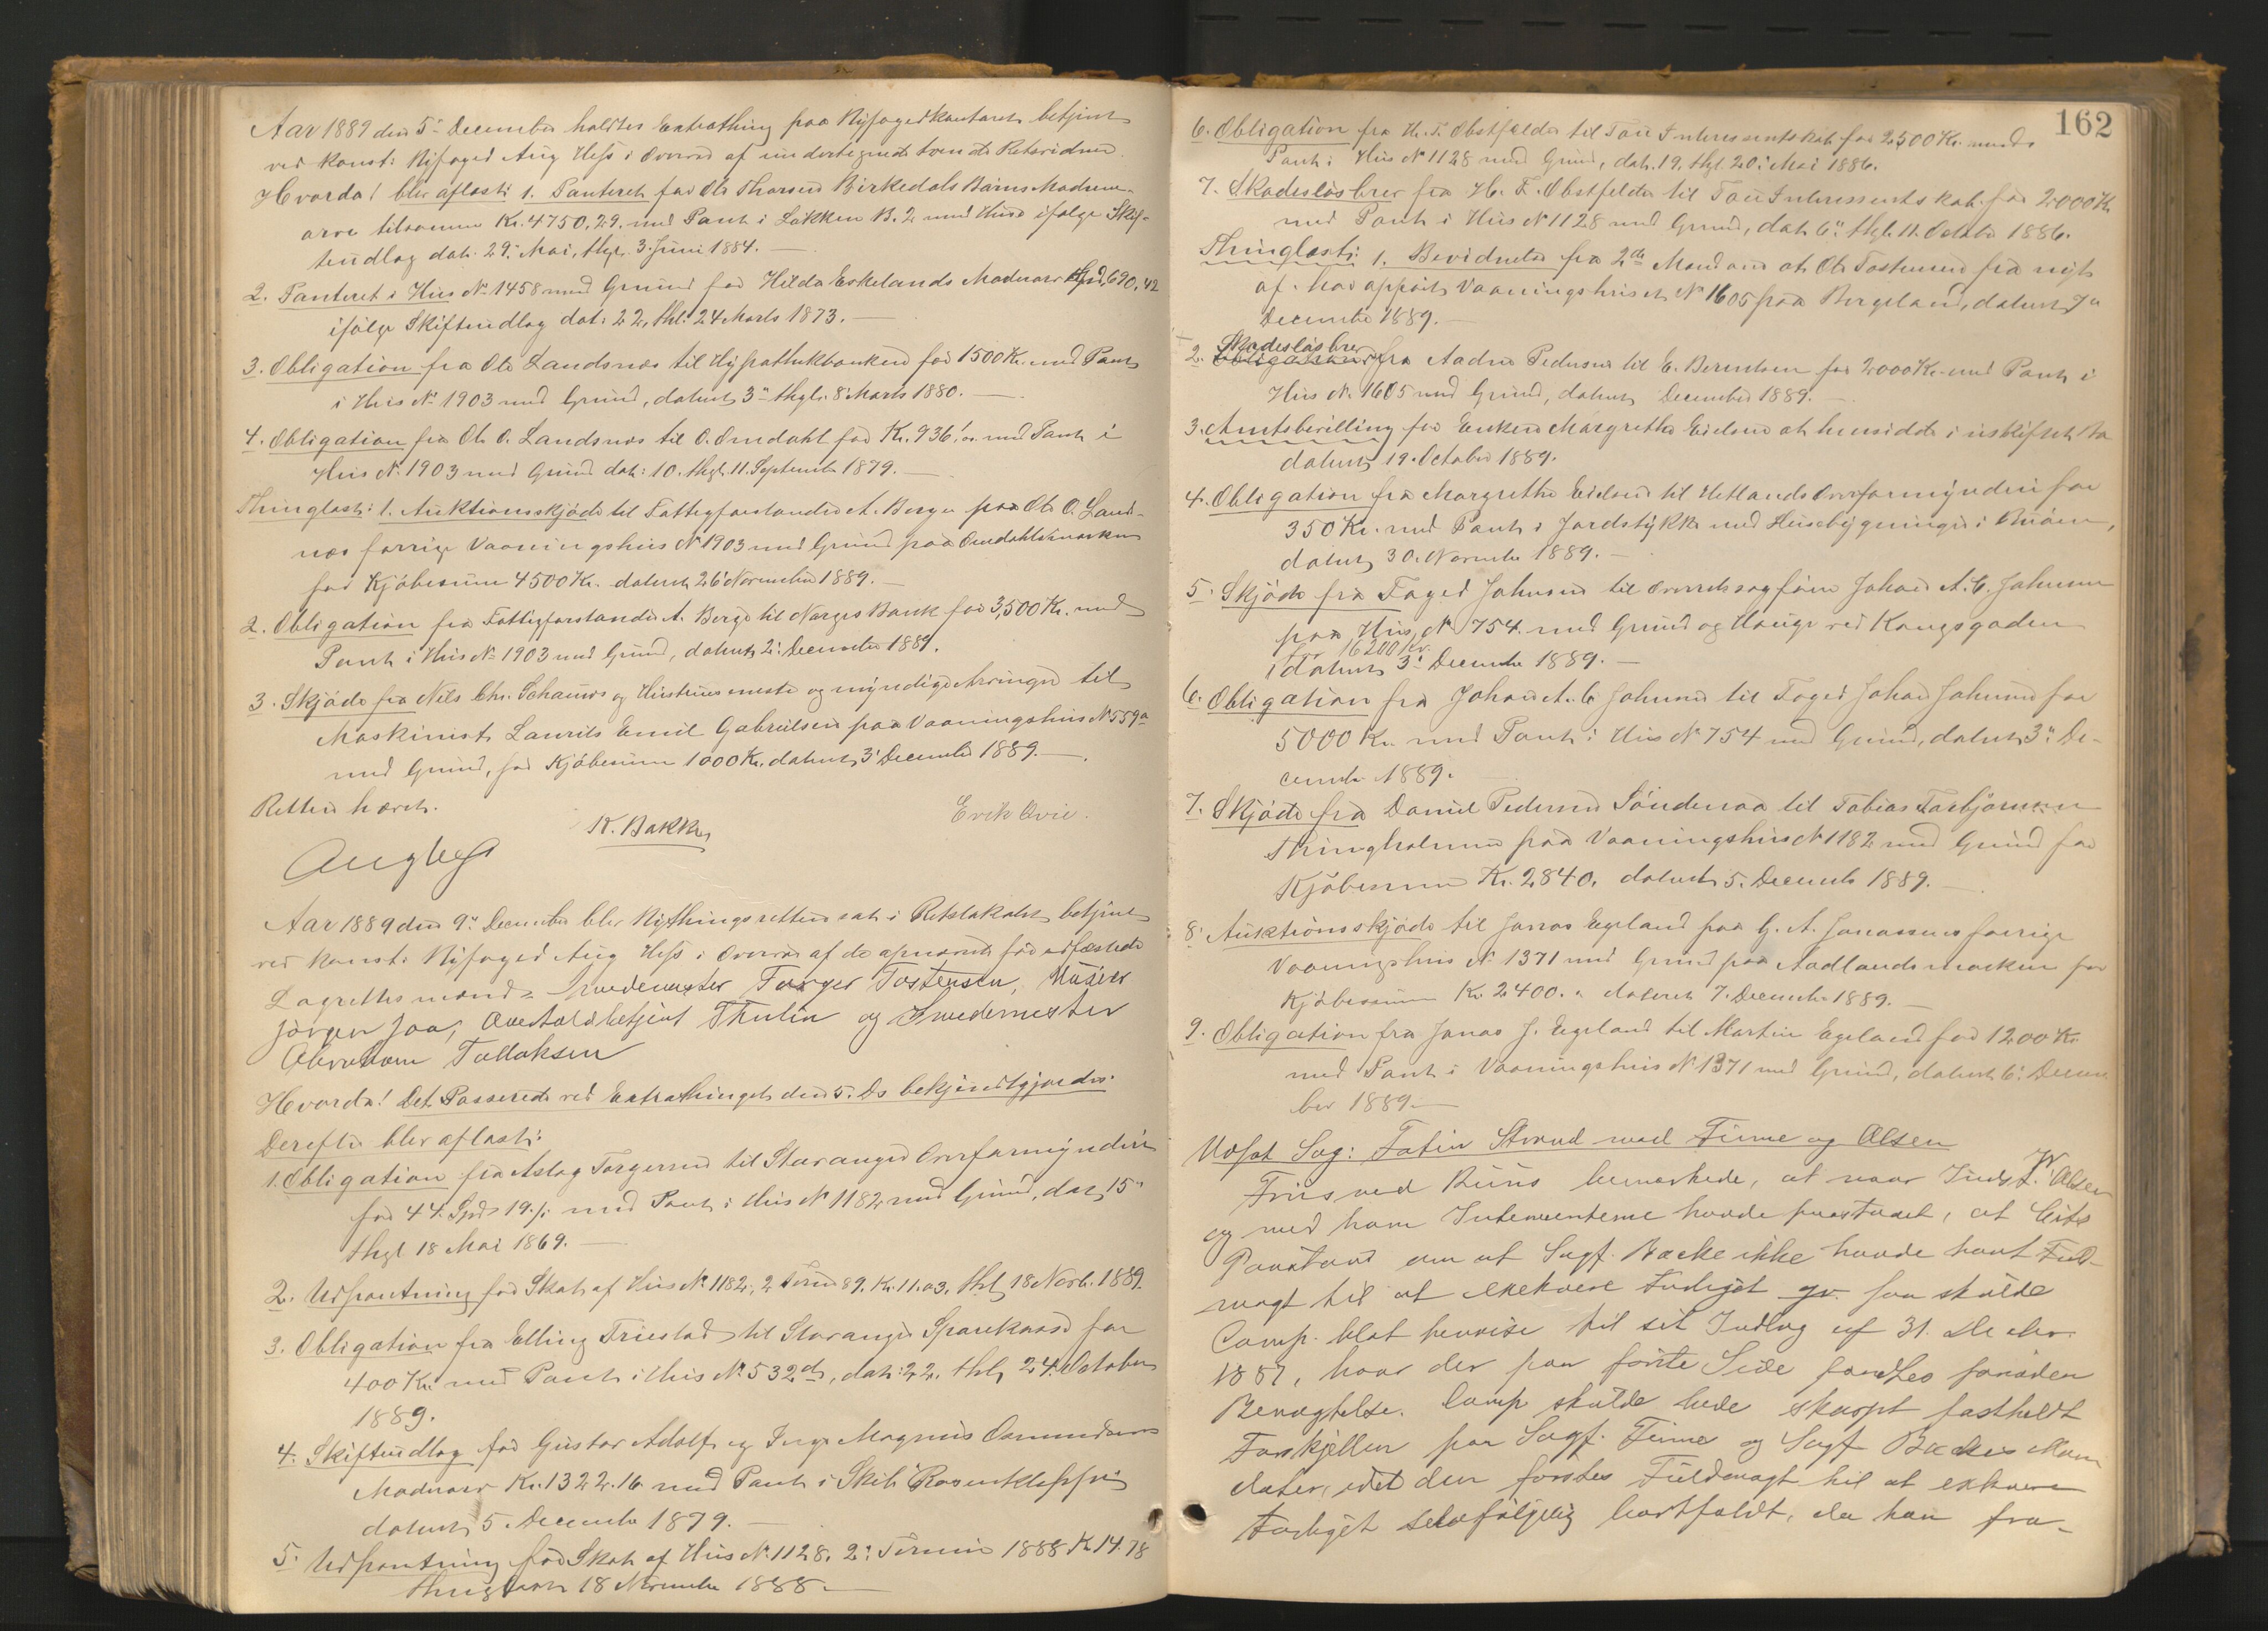 Aar 1889 den 5te December holdtes Extrathing paa Byfogedkontoret betjent
ved konst: Byfoged Aug Hess i Overvær af undertegnede tvende Retsvidner.
Hvorda! blev aflæst: 1. Panteret for Ole Thorsen Birkedals Børns Mødrene-
arv tilsammen Kr. 4750,29. med Pant i Løkken B. 2 med Huse ifølge Skif-
teudlæg dat. 29. Mai, thgl. 3. Juni 1884.
2. Panteret i Hus No 1458 med Grund for Hilda Eskelands Mødrearv 690,42
ifølge Skifteudlæg dat: 22, thl: 24 Marts 1873.
3. Obligation fra Ole Landsnæs til Hypothekbanken for 1500 Kr. med Pant
i Hus No 1903 med Grund, dateret 3" thgl. 8' Marts 1880.
4. Obligation fra Ole O. Landsnæs til O. Omdahl for Kr. 936, med Pant i
Hus No 1903 med Grund dat: 10. thgl. 11. September 1879.
Thinglæst: 1. Auktionsskjøde til Fattigforstander A. Berge paa Ole O. Lands-
næs forrige Vaaningshus No 1903 med Grund paa Omdahlsmarken
for Kjøbesum 4500 Kr. dateret 26' November 1889.
2. Obligation fra Fattigforstander A. Berge til Norges Bank for 3,500 Kr. med
Pant i Hus No 1903 med Grund, dateret 2: December 1889.
3. Skjøde fra Nils Chr. og Hustrues og myndige Arvinger til
Maskinist Laurits Emil Gabrielsen paa Vaaningshus No 559a
med Grund, for Kjøbesum 1000 Kr. dateret 3' December 1889.
Retten hævet.
Aug Hess K. Bakke Erik Qvie.
Aar 1889 den 9" December blev Bythingsretten sat i Retslokalet betjent
ved konst. Byfoged Aug Hess i Overvær af de opnævnte før edfæstede
Lagrettesmænd: Smedemester Torger Tostensen, Murer
Jørgen Joa, Overtoldbetjent Thulin og Smedemester
Abraham Tallaksen
Hvorda! Det Passerede ved Extrathinget den 5. Ds bekjendtgjordes.
Derefter blev aflæst:
1. Obligation fra Aslag Torgersen til Stavanger Overformynderi
for 44. Spd 19. s. med Pant i Hus No 1182 med Grund, dat. 15"
thgl 18 Mai 1869.
2. Udpantning for Skat af Hus No 1182, 2 Termin 89. Kr. 11.03, thl. 18 Novb. 1889.
3. Obligation fra Elling Friestad til Stavanger Sparekasse for
400 Kr. med Pant i Hus No 532d, dat: 22. thl. 24. October
1889.
4. Skifteudlæg for Gustav Adolf og Inga Magnus Osmundsens
Mødrearv Kr. 1322.16 med Pant i Skib "Rosenkleppen"
dateret 5. December 1879.
5. Udpantning for Skat af Hus No 1128. 2: Termin 1888 Kr 14.78
thinglæst 18 November 1888.
162
6. Obligation fra H. F. Obstfelder til Tou Interessentskab for 2,500 Kr. med
Pant i Hus No 1128 med Grund, dat. 19. thgl. 20: Mai 1886.
7. Skadesløsbrev fra H. F. Obstfelder til Tou Interessentskab for 2000 Kr
med Pant i Hus No 1128 med Grund, dat. 6" thgl. 11. October 1886.
Thinglæst: 1. Bevidnelse fra 2de Mænd om at Ole Tostensen fra nyt
af har opført Vaaningshuset No 1605 paa Bergeland, dateret 7"
December 1889.
2. Skadesløsbrev fra Aadne Pedersen til E. Berentsen for 2000 Kr. med Pant i
Hus No. 1605 med Grund, dateret December 1889.
3. Amtsbevilling for Enken Margrethe Eielsen at hensidde i uskiftet Bo
dateret 19. October 1889.
4. Obligation fra Margrethe Eielsen til Hetlands Overformynderi for
350 Kr. med Pant i Jordstykke med Husebygninger i Buøen,
dateret 30. November 1889.
5. Skjøde fra Foged Johnsen til Overretssagfører Johan A. C. Johnsen
paa Hus No 754. med Grund og Hauge ved Kongsgaden
for 16200 Kr.
dateret 3: December 1889.
6. Obligation fra Johan A. C. Johnsen til Foged Johan Johnsen for
5000 Kr. med Pant i Hus No 754 med Grund, dateret 3" De-
cember 1889.
7. Skjøde fra Daniel Pedersen Søndenaa til Tobias Torbjørnsen
Thingholmen paa Vaaningshus No 1182 med Grund for
Kjøbesum Kr. 2840. dateret 5. December 1889.
8. Auktionsskjøde til Jonas Egeland paa G. A. Jonassens forrige
Vaaningshus No 1371 med Grund paa Aadlandsmarken for
Kjøbesum Kr. 2400. " dateret 7. December 1889.
9. Obligation fra Jonas J. Egeland til Martin Egeland for 1200 Kr.
med Pant i Vaaningshus No 1371 med Grund, dateret 6: Decem
ber 1889.
Udsat Sag: Fatin Strand mod Finne og Olsen
Friis ved Buus bemærkede, at naar Inds. W. Olsen
og med ham Intervenienterne havde paastaaet, at Cits
Paastand om at Sagf. Backe ikke havde havt Fuld-
magt til at exekvere Forliget gr. saa skulde
Comp. blot henvise til sit Indlæg af 31.
1887, hvor der paa første Side fandtes saadan
Benægtelse. Comp skulde bede skarpt fastholdt
Forskjellen paa Sagf. Finne og Sagf Backes Man
dater, idet den førstes Fuldmagt til at exkvere
Forliget selvfølgelig bortfaldt, da han fra-